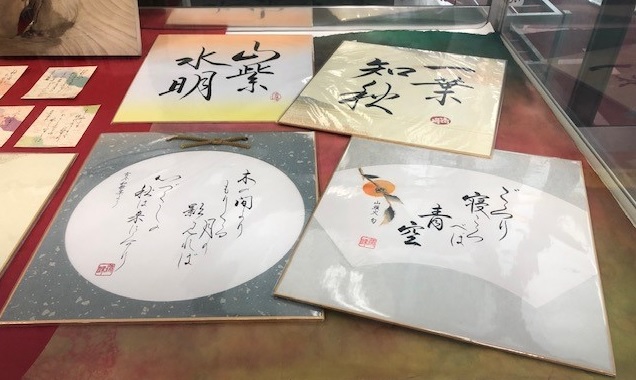 山紫
水明
一葉
知秋
木の間より
もりくる
月の
影みれば
心づくしの
秋は来にけり
ごろり
寝ころ
べば
青
空
山頭火 句